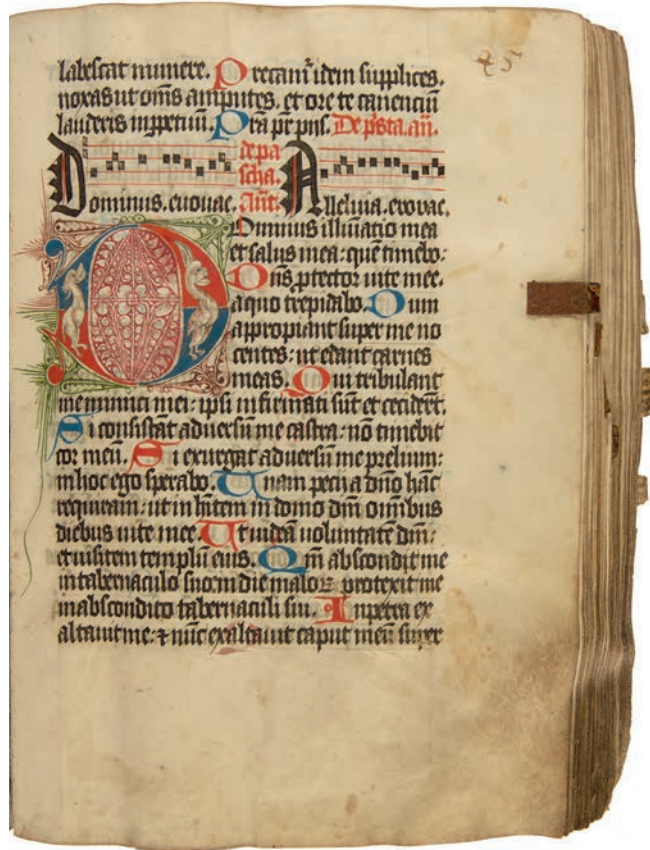 25
labescat munere. Precam̄ idem supplices.
noxas ut om̄s amputes. et ore te canenciū
lauderis in ꝑpetuū. Pr̄a pr̄ pns. De pͥsta. añ.
de pa
scha.
Dominus. euouae. Añt. Alleluia. euouae.
Dominus illūatio mea
et salus mea: quē timebo:
Dn̄s ꝓtector uite mee.
a quo trepidabo. Dum
appropiant super me no
centes: ut edant carnes
meas. Qui tribulant
me inimici mei: ipsi infirmati sūt et ceciderūt.
Si consistāt adversū me castra: nō timebit
cor meū. Si exurgat adversū me prelium:
in hoc ego sperabo. Unam pecii a dn̄o hāc
requiram: ut in hītem in domo dn̄i omībus
diebus uite mee. Ut uideā uoluntatē dn̄i:
et uisitem templū eius. Qm̄ abscondit me
in tabernaculo suo in die maloꝝ protexit me
in abscondito tabernaculi sui. In petra ex
altauit me: ⁊ nūc exaltauit caput meū super